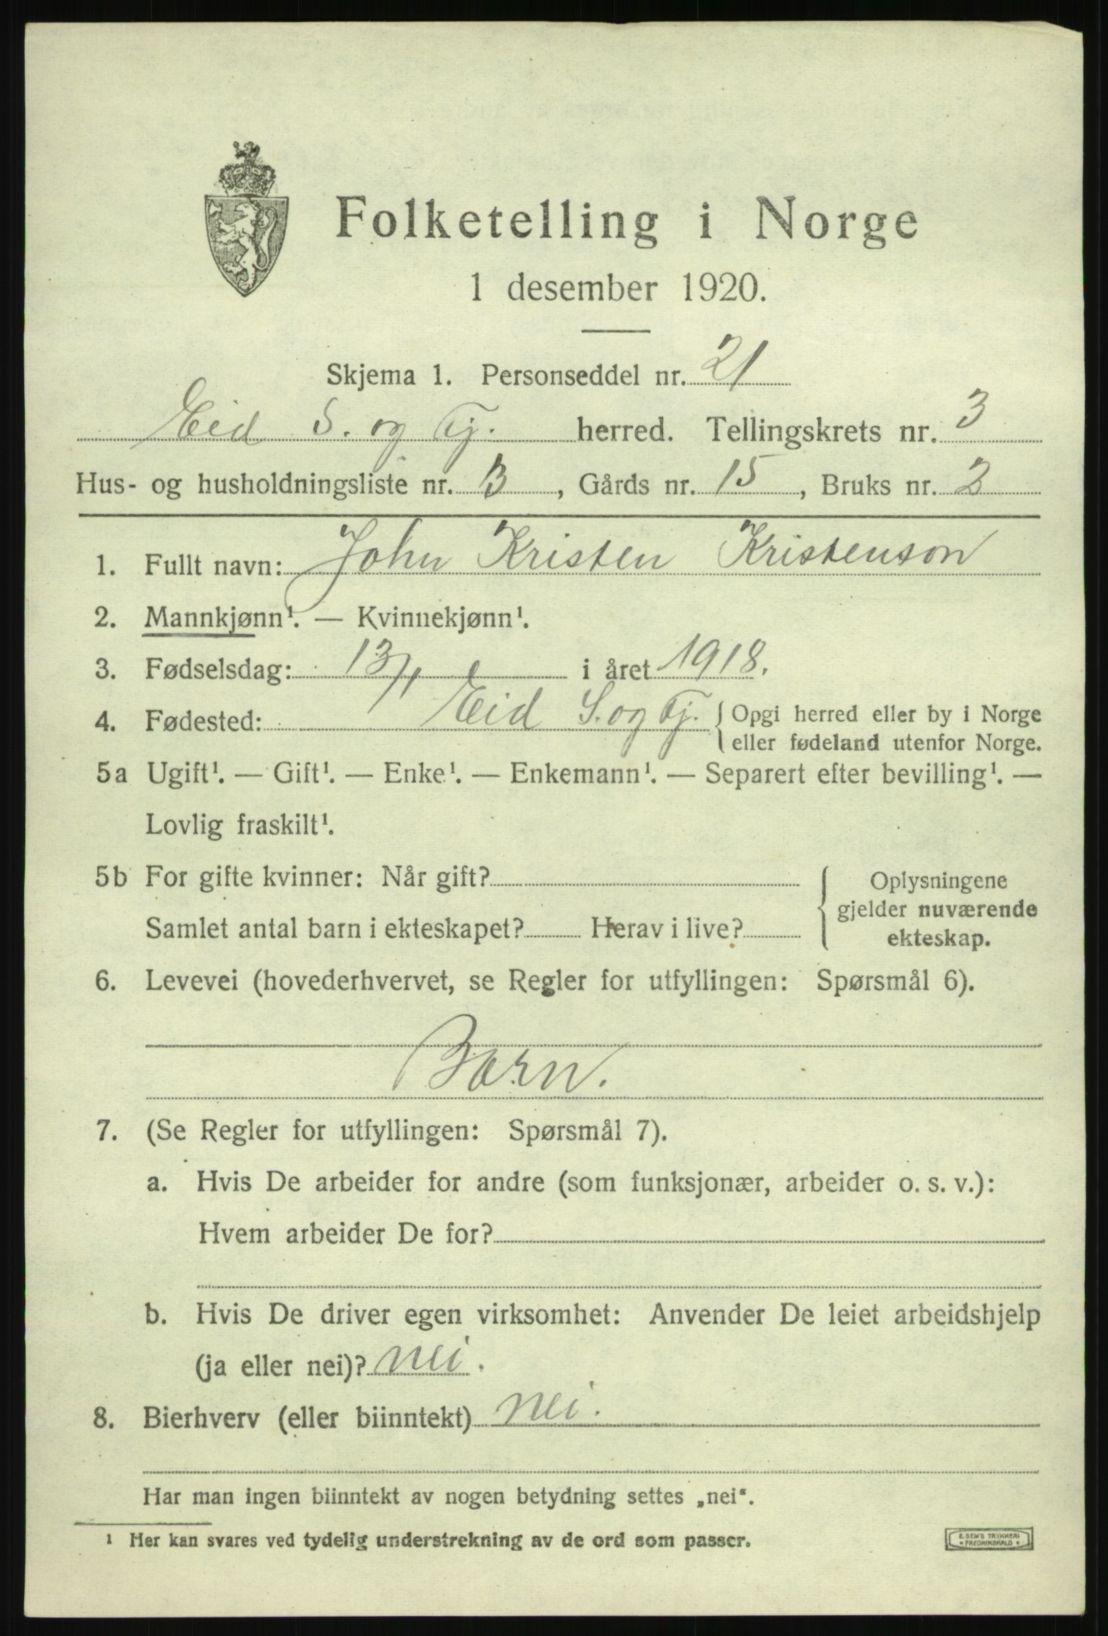 Folketelling i Norge
1 desember 1920.
Skjema 1. Personseddel nr. 21
Eid S. og Fj. herred. Tellingskrets nr. 3
Hus- og husholdningsliste nr. B, Gårds nr. 15, Bruks nr. 2
1. Fullt navn: John Kristen Kristenson
2. Mannkjønn¹. — Kvinnekjønn¹.
3. Fødselsdag: 13/1 i året 1918.
4. Fødested: Eid S. og Fj. { Opgi herred eller by i Norge
eller fødeland utenfor Norge.
5a Ugift¹. — Gift¹. — Enke¹. — Enkemann¹. — Separert efter bevilling¹. —
Lovlig fraskilt¹.
5b For gifte kvinner: Når gift?
Samlet antal barn i ekteskapet? Herav i live?
{ Oplysningene
gjelder nuværende
ekteskap.
6. Levevei (hovederhvervet, se Regler for utfyllingen: Spørsmål 6).
Born.
7. (Se Regler for utfyllingen: Spørsmål 7).
a. Hvis De arbeider for andre (som funksjonær, arbeider o. s. v.):
Hvem arbeider De for?
b. Hvis De driver egen virksomhet: Anvender De leiet arbeidshjelp
(ja eller nei)? nei.
8. Bierhverv (eller biinntekt) nei.
Har man ingen biinntekt av nogen betydning settes „nei“.
¹ Her kan svares ved tydelig understrekning av de ord som passer.
E. SEM'S TRYKKERI
• FREDRIKSHALD •